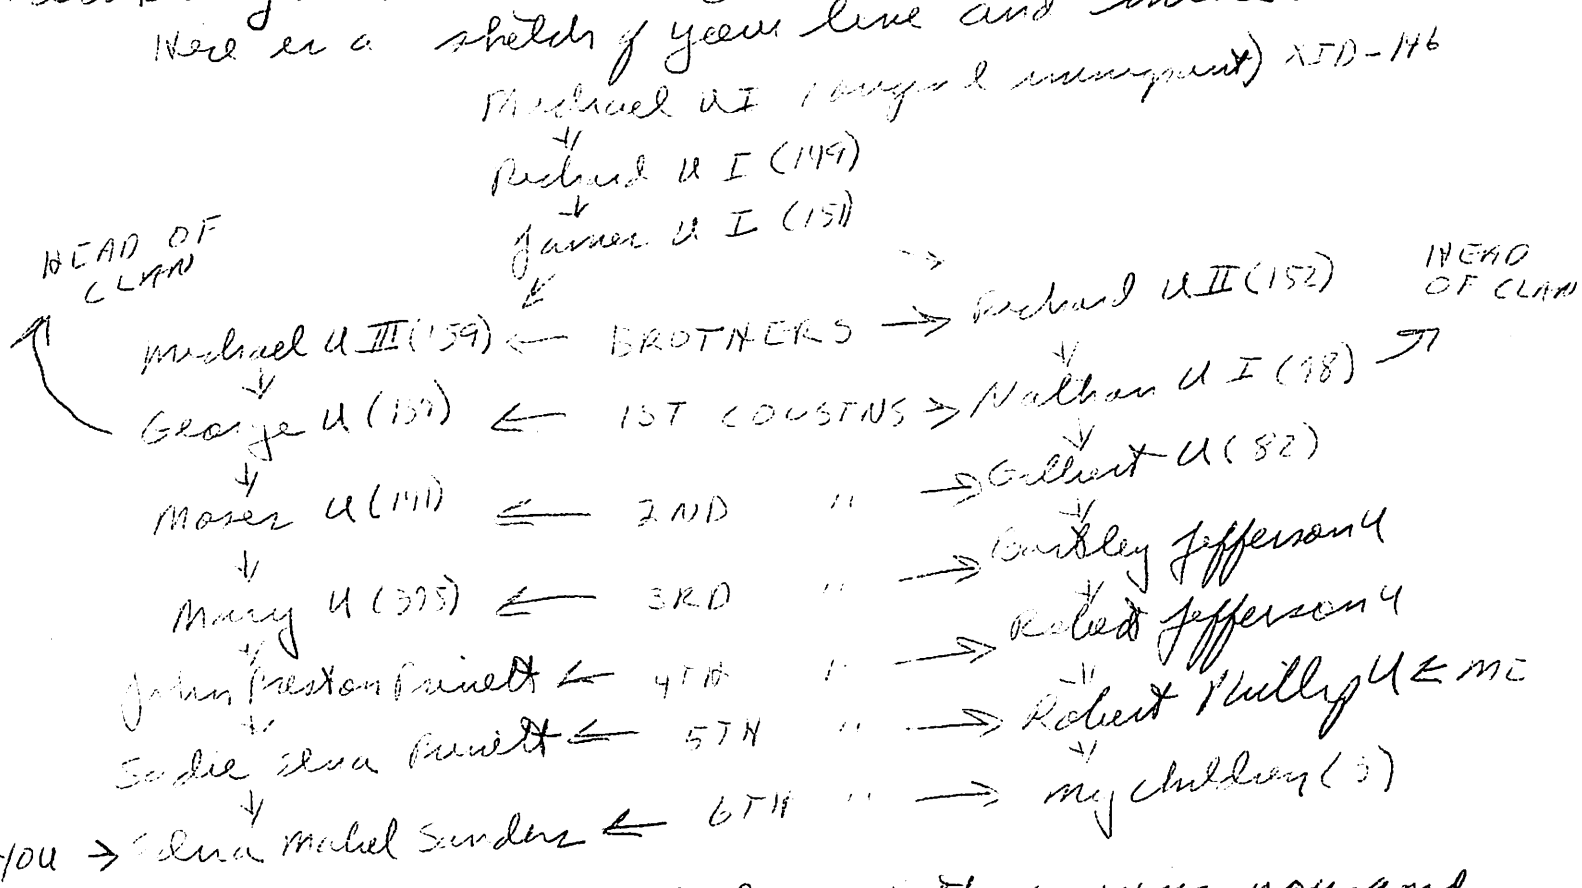 Here is a sketch of your line and
Michael U I (original immigrant) XID-146
↓
Richard U I (149)
↓
James U I (151)
HEAD OF CLAN
HEAD OF CLAN
Michael U III (159) ← BROTHERS → Richard U II (152)
↓ ↓
George U (137) ← 1ST COUSINS → Nathan U I (78)
↓ ↓
Moses U (141) ← 2ND " → Gilbert U (82)
↓ ↓
Mary U (395) ← 3RD " → Bartley Jefferson U
↓ ↓
John Preston Pruiett ← 4TH " → Robert Jefferson U
↓ ↓
Sadie Elva Pruiett ← 5TH " → Robert Phillip U ← ME
↓ ↓
YOU → Edna Mabel Sanders ← 6TH " → my children (3)